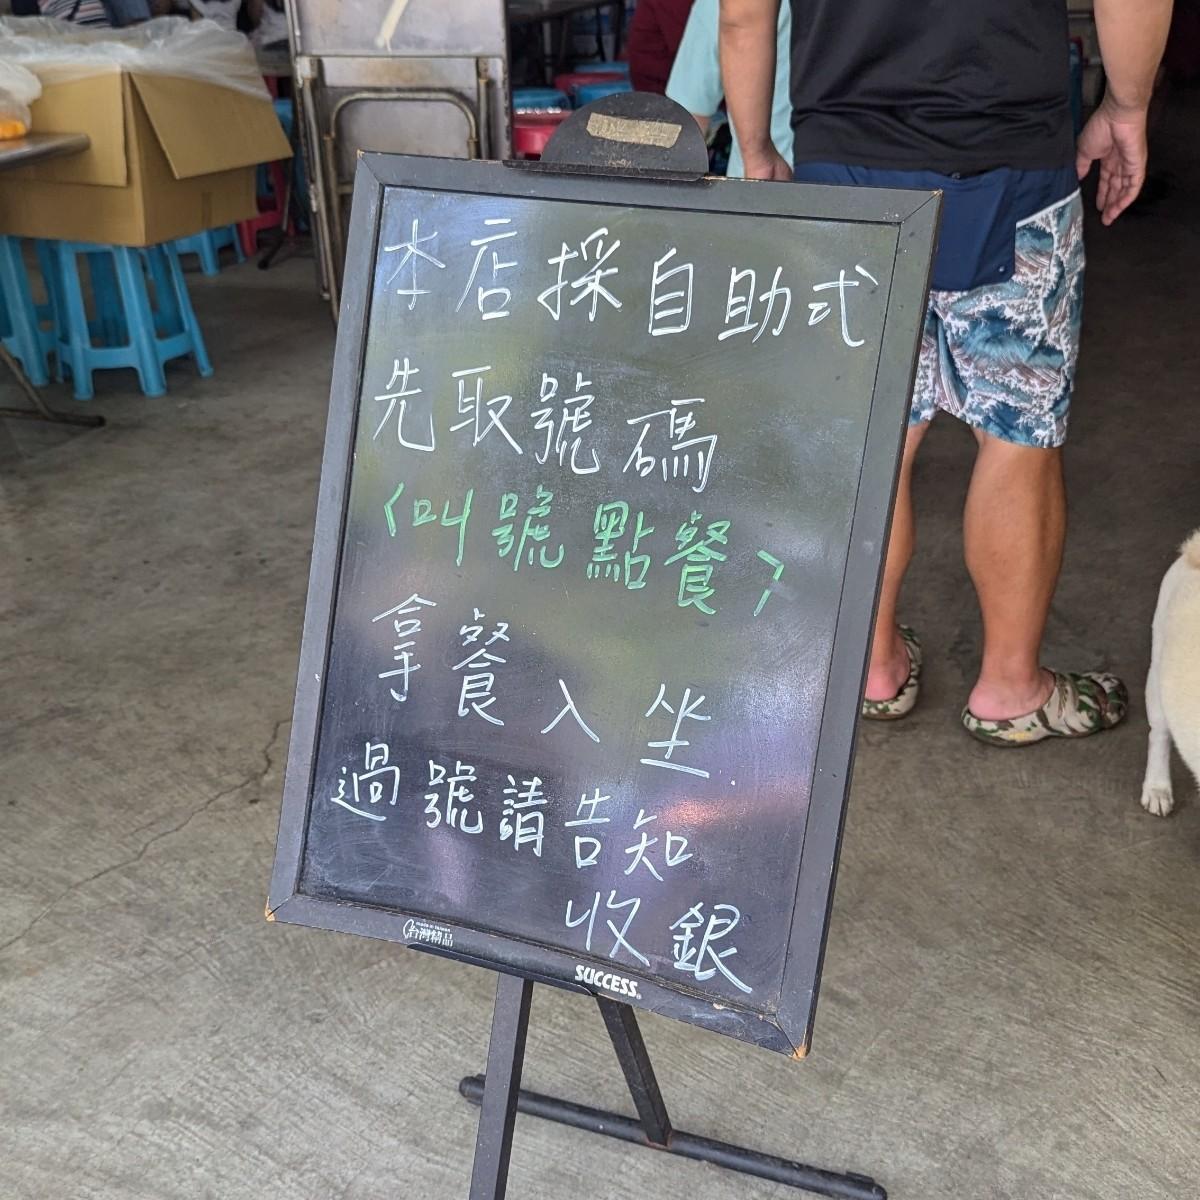 本店採自助式
先取號碼
<叫號點餐>
拿餐入坐
過號請告知
收銀
made in taiwan
台灣精品
SUCCESS